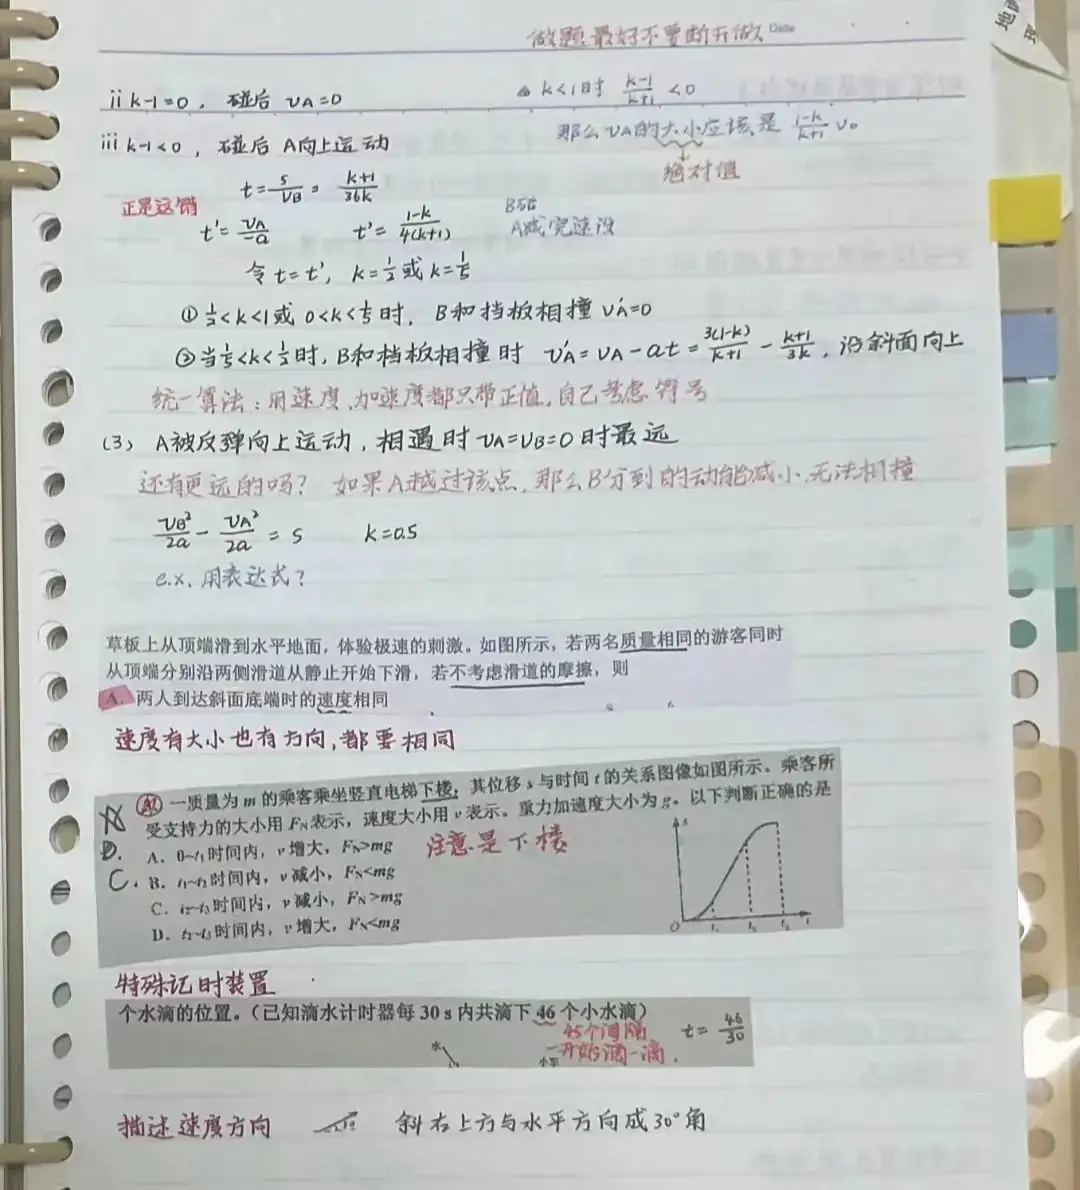 做题最好不要断开做 Date
ii k-1=0，碰后 vA=0
k<1时 k-1/k+1 <0
那么vA的大小应该是 1-k/k+1 v₀
绝对值
iii k-1<0，碰后 A向上运动
t=s/vB= k+1/36k
正是这错
t'=vA/-a t'=1-k/4(k+1)
B与
A减完速没
令 t=t'，k=1/2或k=1/5
①1/2<k<1或 0<k<1/5时，B和挡板相撞 vA'=0
②当1/5<k<1/2时，B和档板相撞时 vA'=vA-at=3(1-k)/k+1 - k+1/3k，沿斜面向上
统一算法：用速度、加速度都只带正值，自己考虑符号
(3) A被反弹向上运动，相遇时 vA=vB=0时最远
还有更远的吗？如果A越过该点，那么B分到的动能减小，无法相撞
vB²/2a - vA²/2a = s k=0.5
e.x. 用表达式？
草板上从顶端滑到水平地面，体验极速的刺激。如图所示，若两名质量相同的游客同时
从顶端分别沿两侧滑道从静止开始下滑，若不考虑滑道的摩擦，则
A. 两人到达斜面底端时的速度相同
速度有大小也有方向，都要相同
一质量为 m 的乘客乘坐竖直电梯下楼，其位移 s 与时间 t 的关系图像如图所示。乘客所
受支持力的大小用 FN 表示，速度大小用 v 表示。重力加速度大小为 g。以下判断正确的是
D.
A. 0~t₁时间内，v 增大，FN>mg
注意是下楼
C.
B. t₁~t₂时间内，v 减小，FN<mg
C. t₂~t₃时间内，v 减小，FN>mg
D. t₂~t₃时间内，v 增大，FN<mg
s
O t₁ t₂ t₃ t
特殊记时装置
个水滴的位置。（已知滴水计时器每 30 s 内共滴下 46 个小水滴）
45个间隔
t= 46/30
一开始滴一滴.
水
小车
描述速度方向 斜右上方与水平方向成30°角